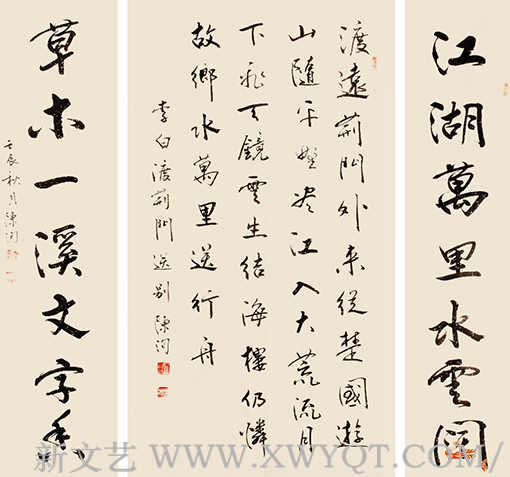 江湖萬里水雲闊
渡遠荊門外来從楚國遊
山隨平野尽江入大荒流月
下飛天鏡雲生結海樓仍憐
故鄉水萬里送行舟
李白渡荊門送別 陳
草木一溪文字香
壬辰秋月陳
新文艺 WWW.XWYQT.COM/